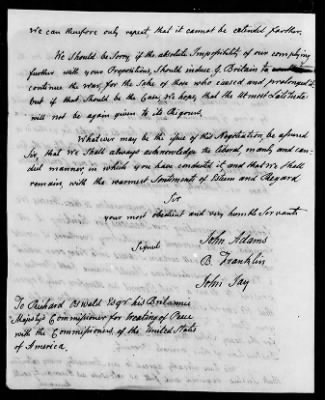 We can therefore only repeat, that it cannot be extended farther.
We Should be Sorry if the absolute Impossibility of our complying
further with your Propositions, Should induce G. Britain to
continue the War, for the Sake of those who caused and prolonged it,
but if that Should be the Case, We hope, that the utmost Latitude
will not be again given to its Rigours.
Whatever may be the Issue of this Negotiation, be assured
Sir, that We Shall always acknowledge the liberal, manly and can-
did manner, in which you have conducted it, and that We Shall
remain, with the warmest Sentiments of Esteem and Regard
Sir
your most obedient and very humble Servants
Signed
John Adams
B. Franklin
John Jay
To Richard Oswald Esqr his Britannic
Majesty's Commissioner for treating of Peace
with the Commissioners of the United States
of America.